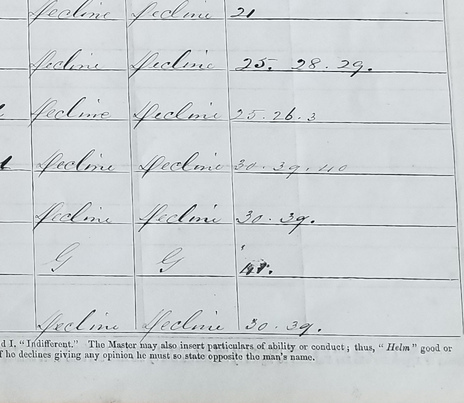 Decline Decline 21
Decline Decline 25. 28. 29.
Decline Decline 25. 26. 3
Decline Decline 30. 39. 40
Decline Decline 30. 39.
G G
Decline Decline 30. 39.
d I. "Indifferent." The Master may also insert particulars of ability or conduct; thus, "Helm" good or
f he declines giving any opinion he must so state opposite the man's name.